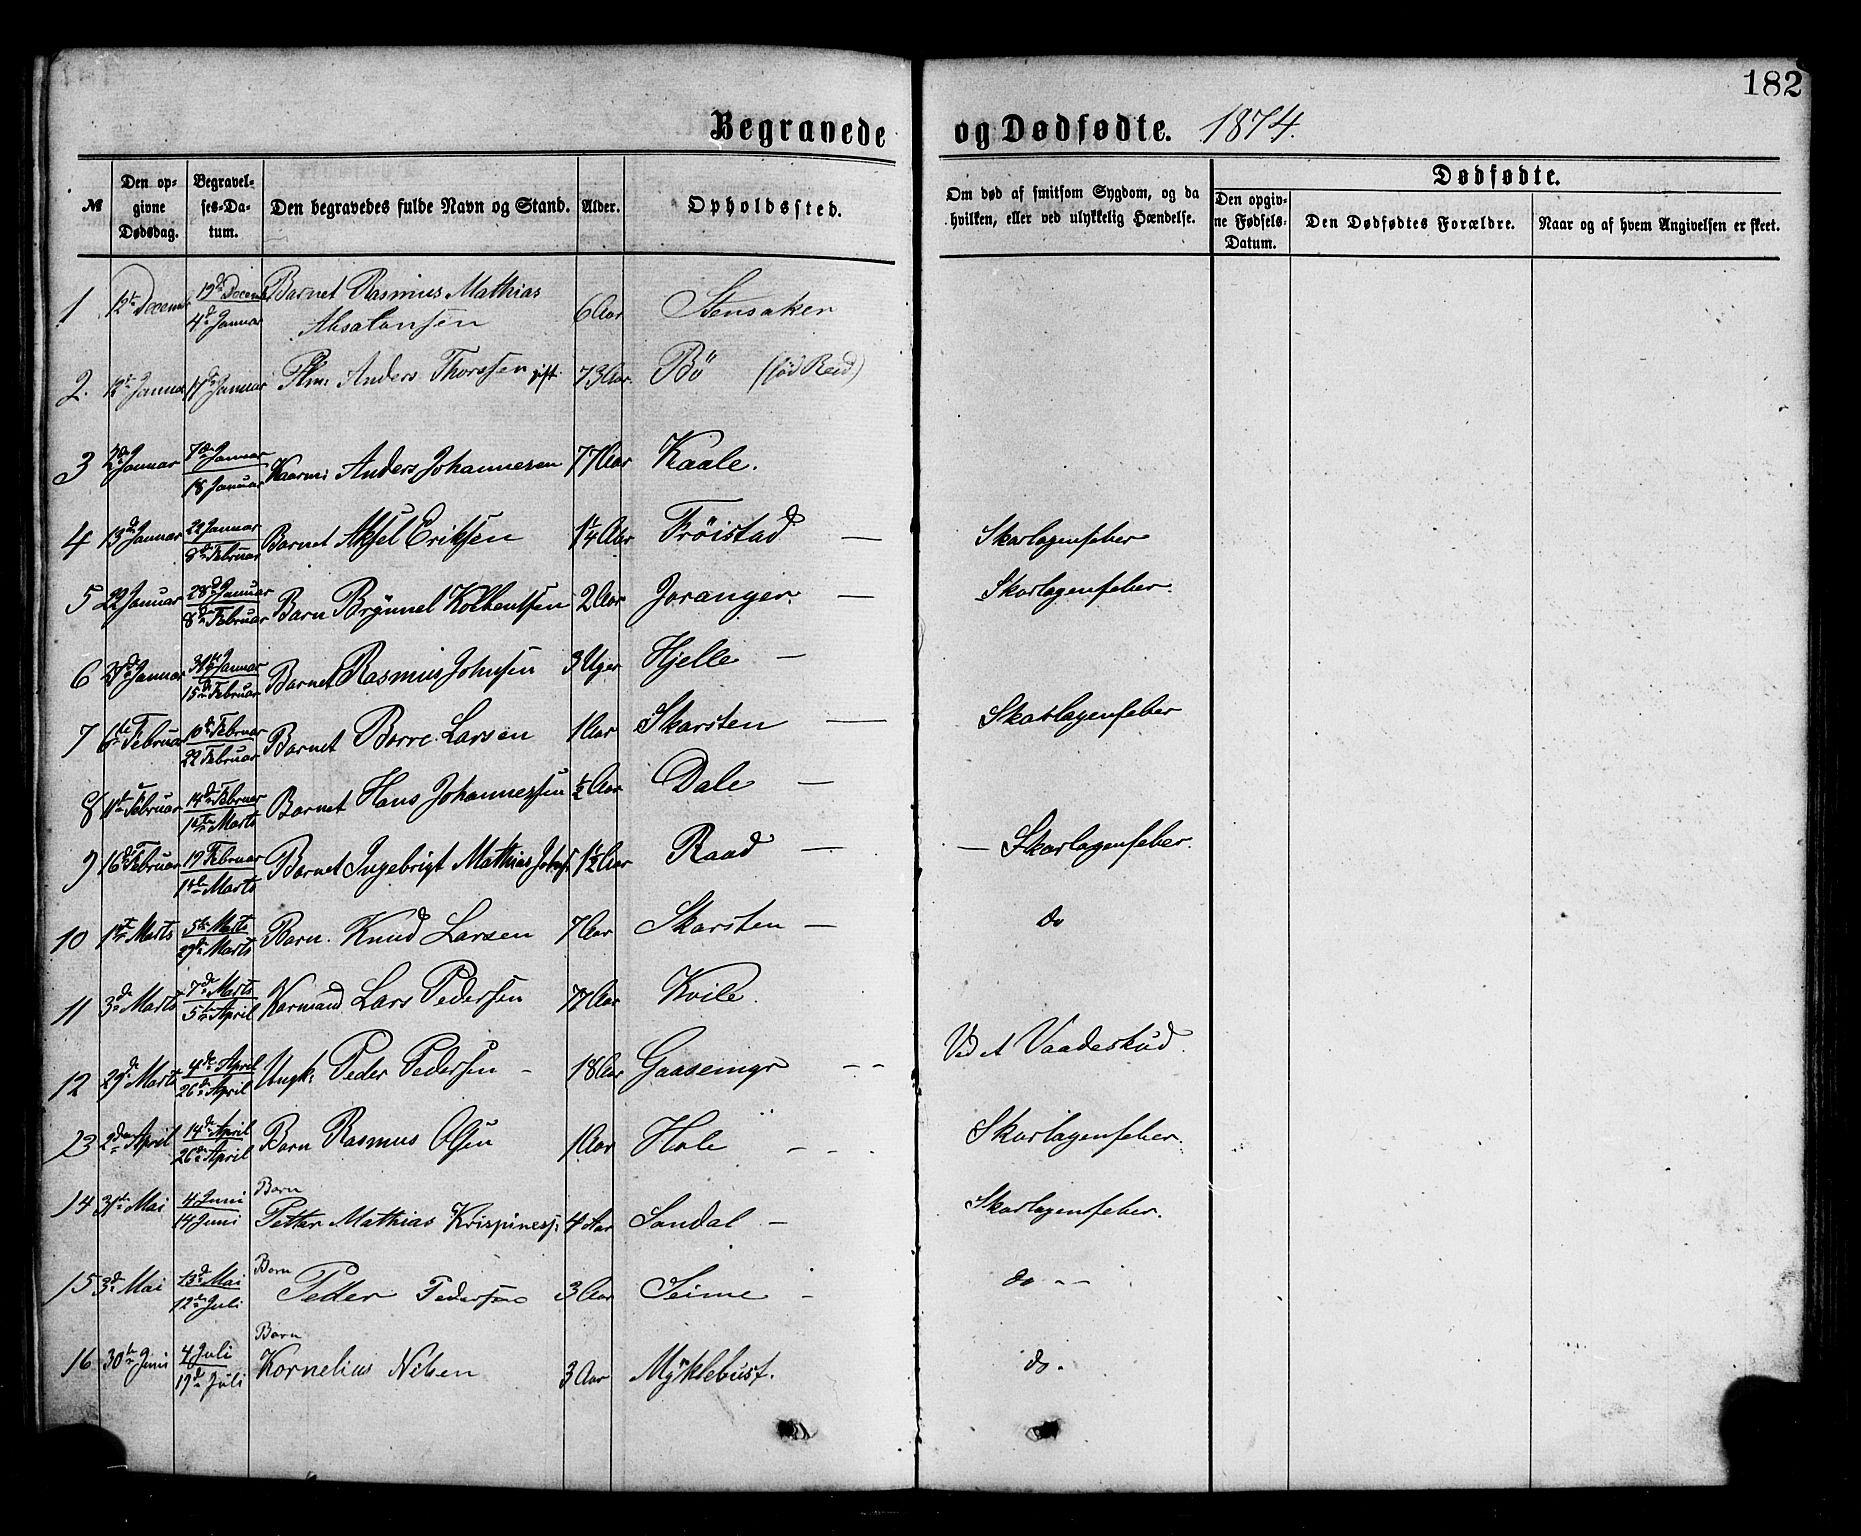 182
Begravede og Dødfødte. 1874.
№
Den op-
givne
Dødsdag.
Begravel-
ses-Da-
tum.
Den begravedes fulde Navn og Stand.
Alder.
Opholdssted.
Om død af smitsom Sygdom, og da
hvilken, eller ved ulykkelig Hændelse.
Dødfødte.
Den opgiv-
ne Fødsels-
Datum.
Den Dødfødtes Forældre.
Naar og af hvem Angivelsen er skeet.
1 12te Decemb 19de Decemb Barnet Rasmus Mathias 6 Aar Stensaker
4de Januar Absalonsen
2. 12te Januar 17de Januar Anders Thorssen gift. 73 Aar. Bö (fød Reid)
3 2den Januar 7de Januar Kaarm: Anders Johannesen 77 Aar Kaale.
18 Januar
4 13de Januar 22 Januar Barnet Aksel Eriksen 1 1/4 Aar Fröistad — Skarlagenfeber
8de Februar
5 22 Januar 28de Januar Barn Brynnel Kolbentsen 2 Aar Joranger. — Skarlagenfeber.
8de Februar
6 Januar 31te Januar Barnet Rasmus Johnsen 3 Uger Hjelle —
15de Februar
7 6te Februar 10de Februar Barnet Borre Larsen 1 Aar Skarsten — Skarlagenfeber
22 Februar
8 11te Februar 14de Februar Barnet Hans Johannessen 1/2 Aar Dale —
1te Marts
9 16de Februar 19 Februar Barnet Ingebrigt Mathias Johns. 1 1/2 Aar Raad — — Skarlagenfeber.
1te Marts
10 1te Marts 5te Marts Barn. Knud Larsen 7 Aar Skarsten — do
29de Marts
11 3de Marts 7de Marts Karmand Lars Pedersen 77 Aar Kvile.
5te April
12 29de Marts 4de April Ungk: Peder Pedersen - 18 Aar Gaasemyr -- Ved et Vaadeskud.
26de April
13 2den April 14de April Barn Rasmus Olsen 1 Aar Hole - - Skarlagenfeber.
26de April
14 31te Mai 4 Juni Barn
14 Juni Petter Mathias Krispiness: 4 Aar Sandal - Skarlagenfeber.
15 3de Mai 13de Mai Barn
12te Juli Petter Pedersen 3 Aar Seime - do --
16 30te Juni 4 Juli Barn
19de Juli Kornelius Nilsen 3 Aar Myklebust. do.